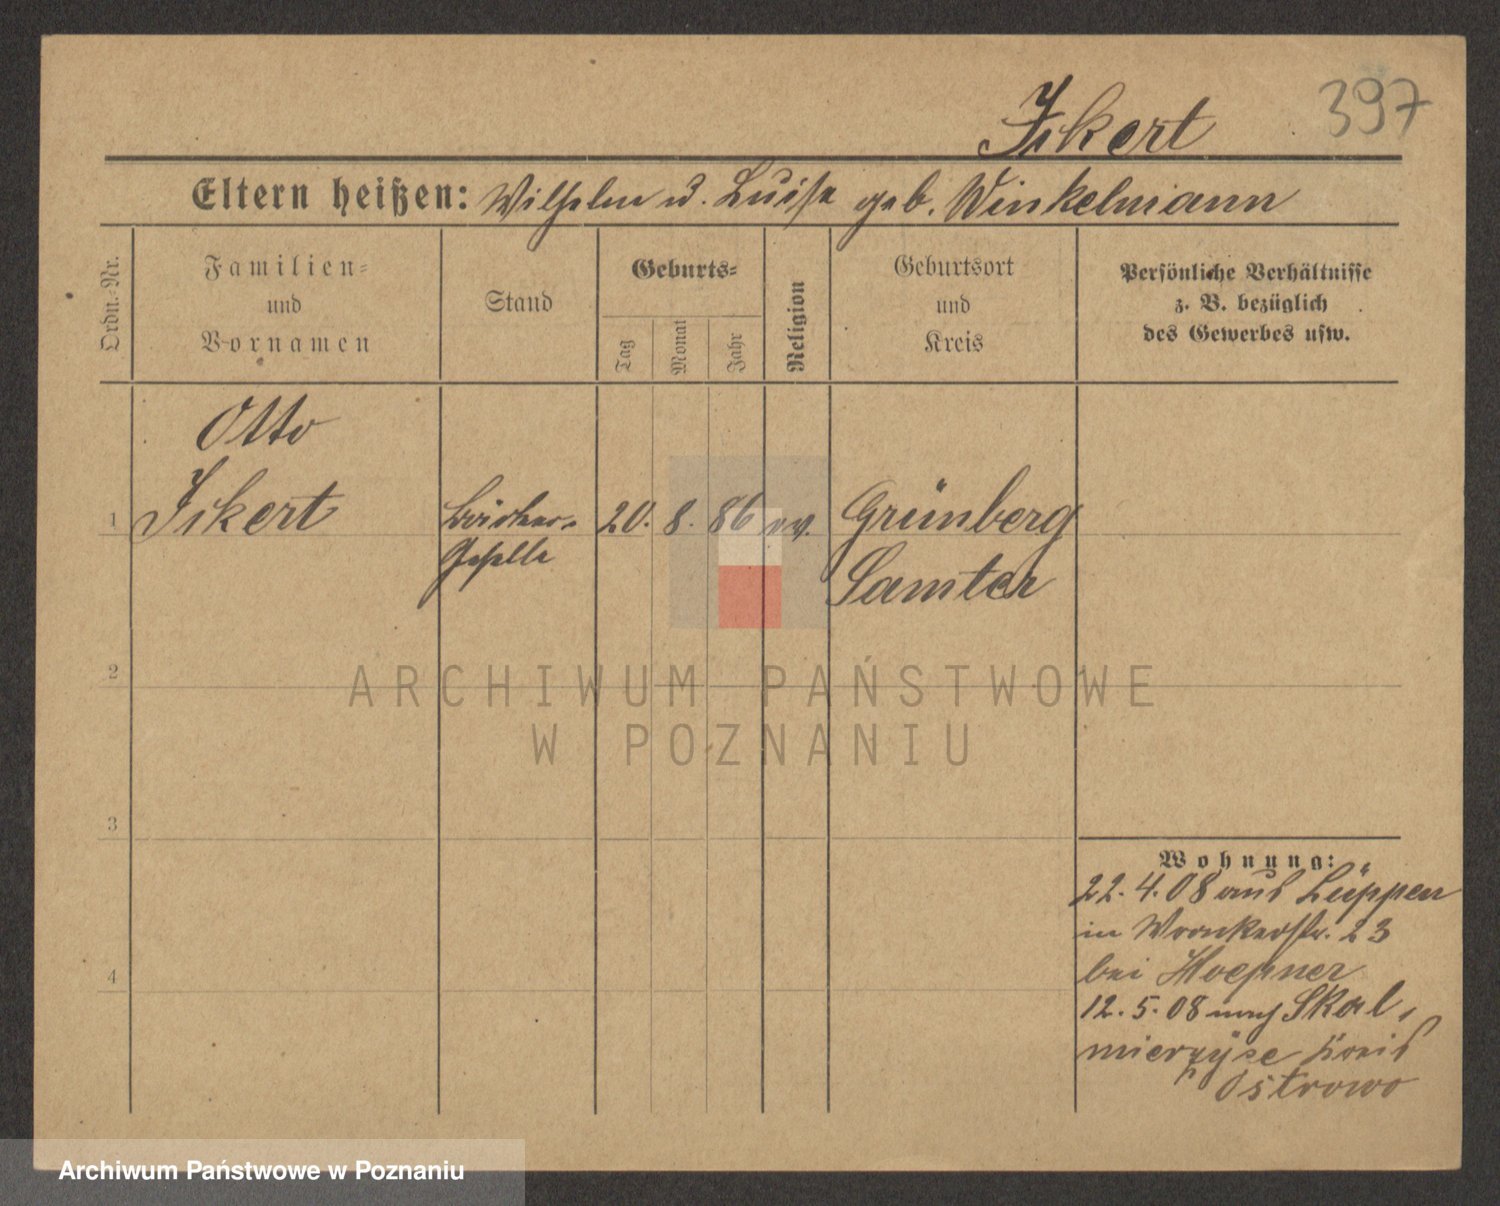 397
Ikert
Eltern heißen: Wilhelm u. Luise geb. Winkelmann
Ordn.-Nr.
Familien-
und
Vornamen
Stand
Geburts-
Tag
Monat
Jahr
Religion
Geburtsort
und
Kreis
Persönliche Verhältnisse
z. B. bezüglich
des Gewerbes usw.
Otto
1 Ikert
Geselle
20. 8. 86 ev. Grünberg
Samter
2
ARCHIWUM PAŃSTWOWE
W POZNANIU
3
Wohnung:
22. 4. 08 aus Lüppen
in Wronkerstr. 23
bei Hoepner
4
12. 5. 08 nach Skal-
mierzyse Kreis
Ostrowo
Archiwum Państwowe w Poznaniu